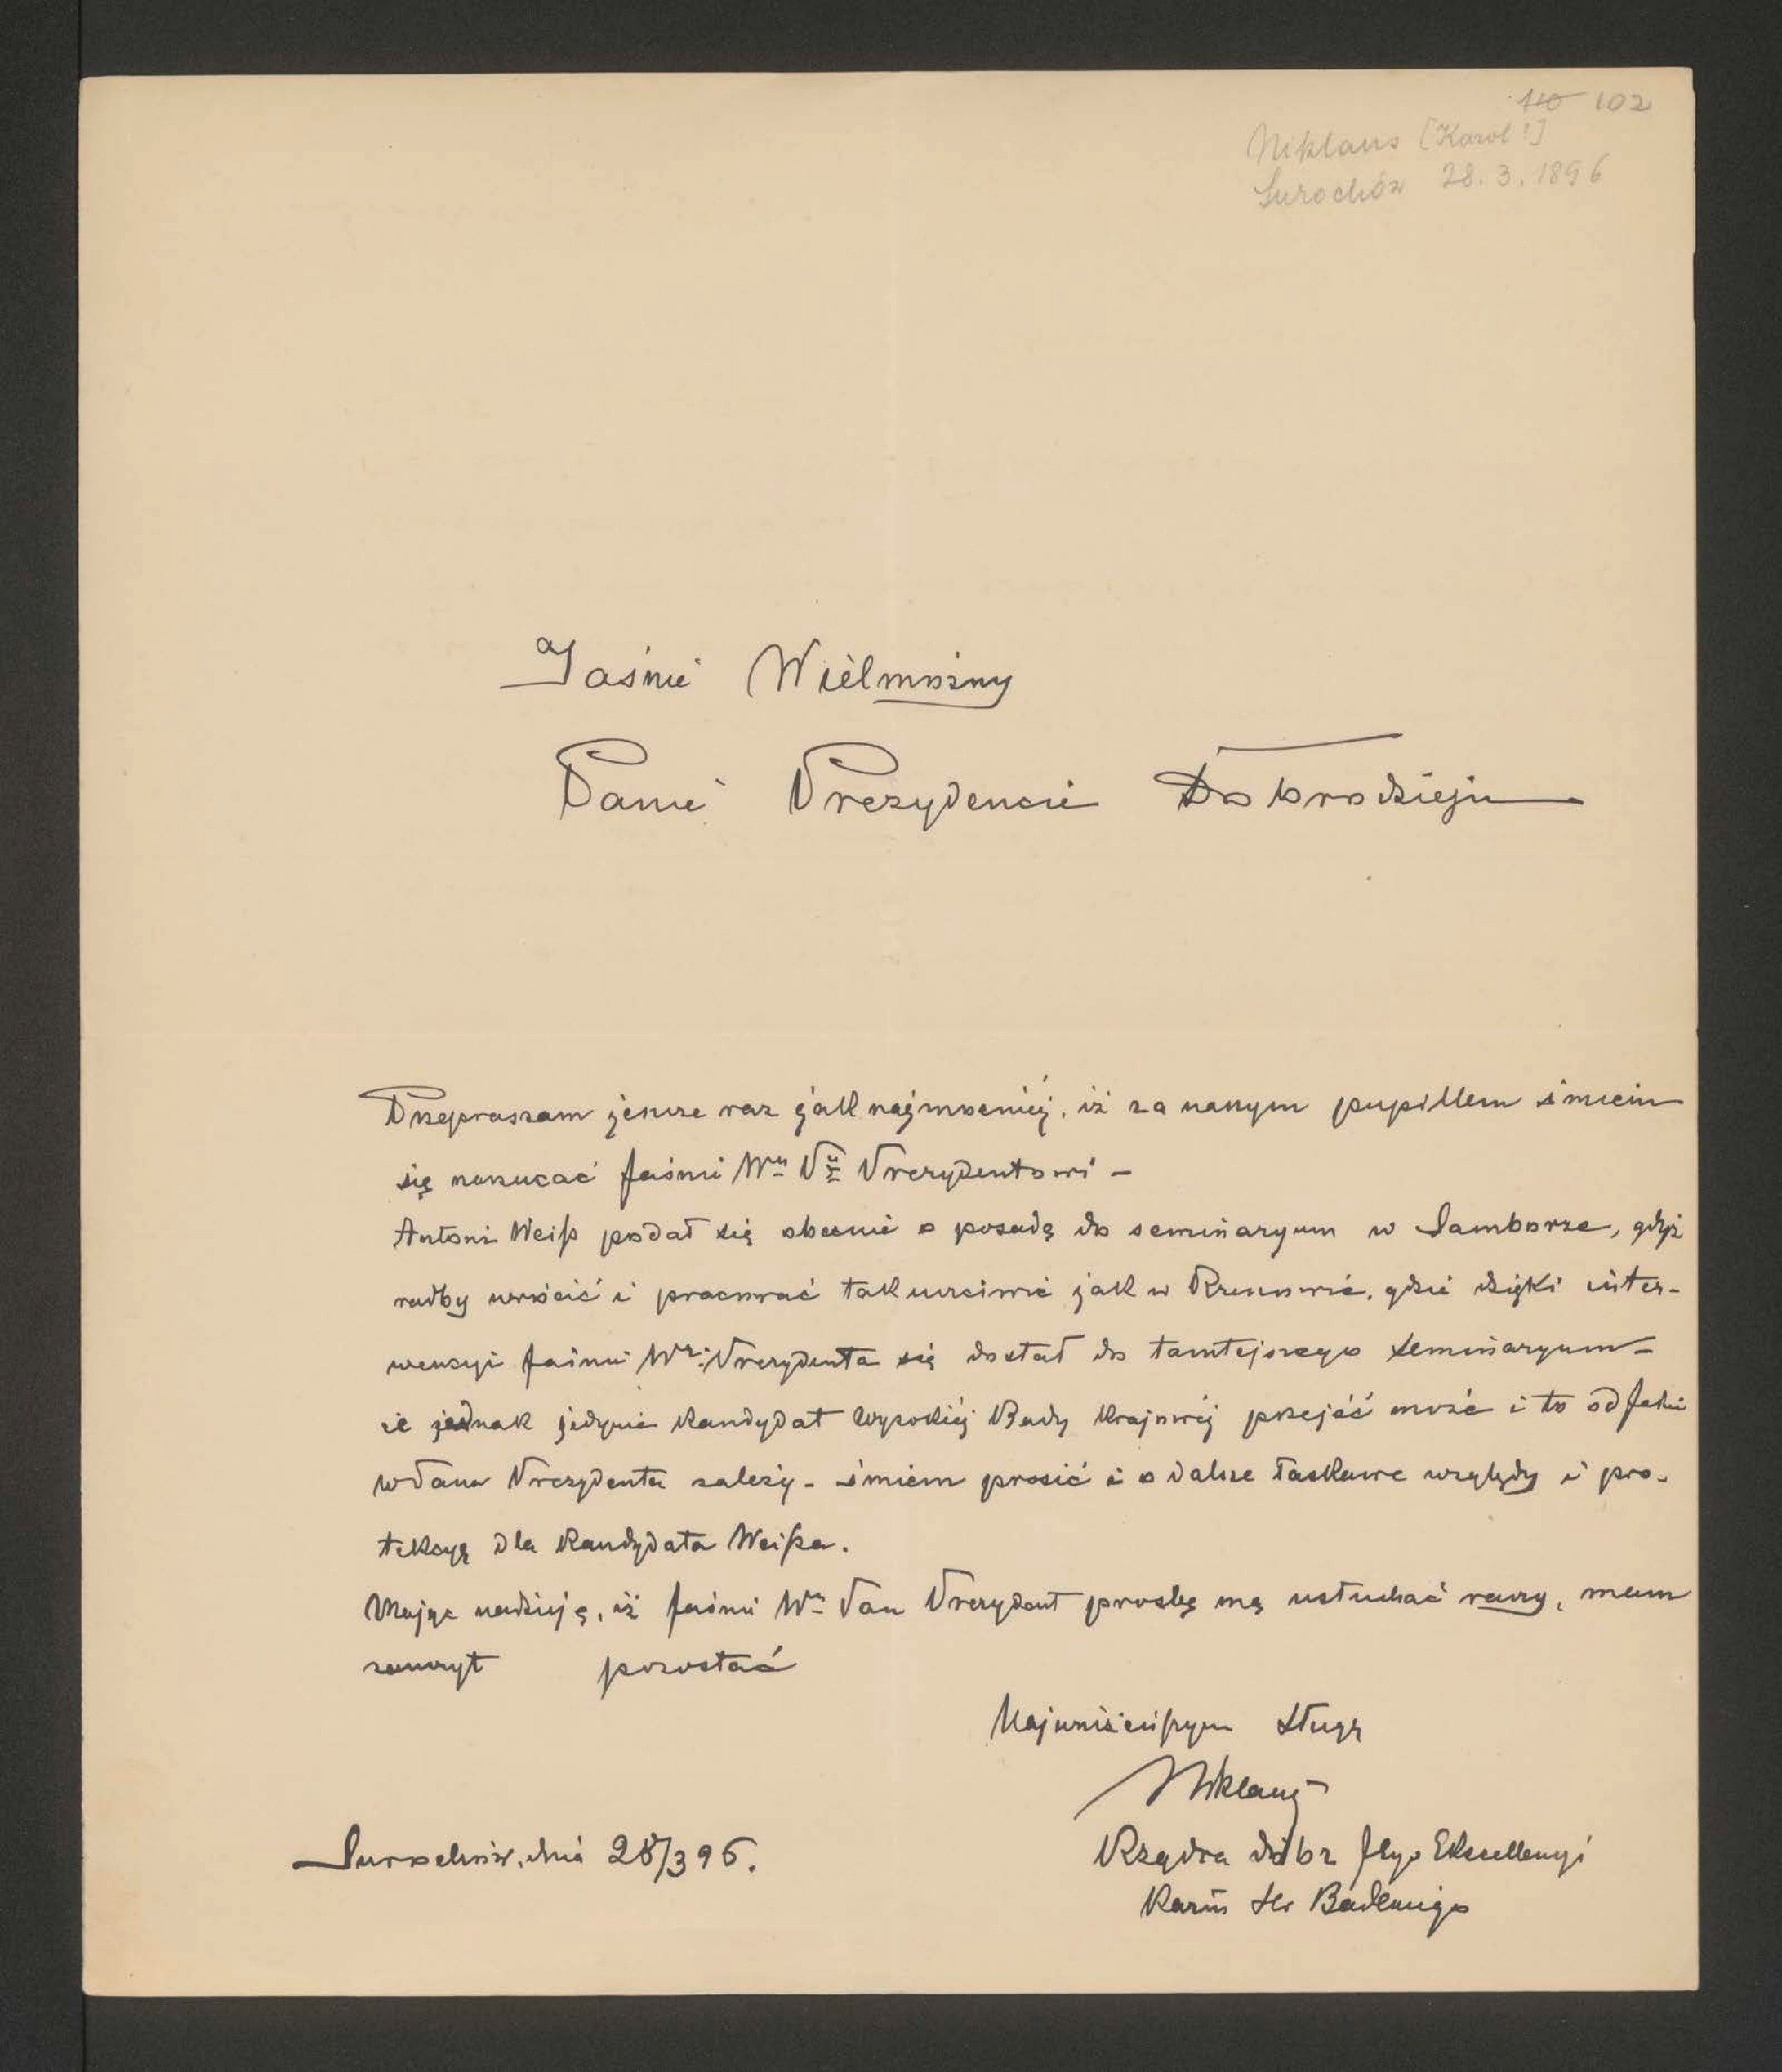 110 102
Niklaus [Karol?]
Surochów 28. 3. 1896
Jaśnie Wielmożny
Panie Prezydencie Dobrodzieju
Przepraszam jeszcze raz jak najmocniéj, iż za naszym pupillem śmiem
się narzucać Jaśnie Wu Pu Prezydentowi –
Antoni Weiß podał się obecnie o posadę do seminaryum w Samborze, gdyż
radby wrócić i pracować tak uczciwie jak w Rzeszowie, gdzie dzięki inter-
wencyi Jaśnie Wr: Prezydenta się dostał do tamtejszego seminaryum –
że jednak jedynie kandydat Wysokiéj Rady Krajowéj przejść może i to od Jaśnie
w Pana Prezydenta zależy – śmiem prosić i o dalsze łaskawe względy i pro-
tekcyę dla kandydata Weißa.
Mając nadzieję, iż Jaśnie Wy Pan Prezydent prośbę mą wysłuchać raczy, mam
zaszczyt pozostać
Najuniżeńszym sługą
Niklaus
Surochów, dnia 28/3 96.
Rządca dóbr Jego Ekscellencyi
Kazim hr Badeniego